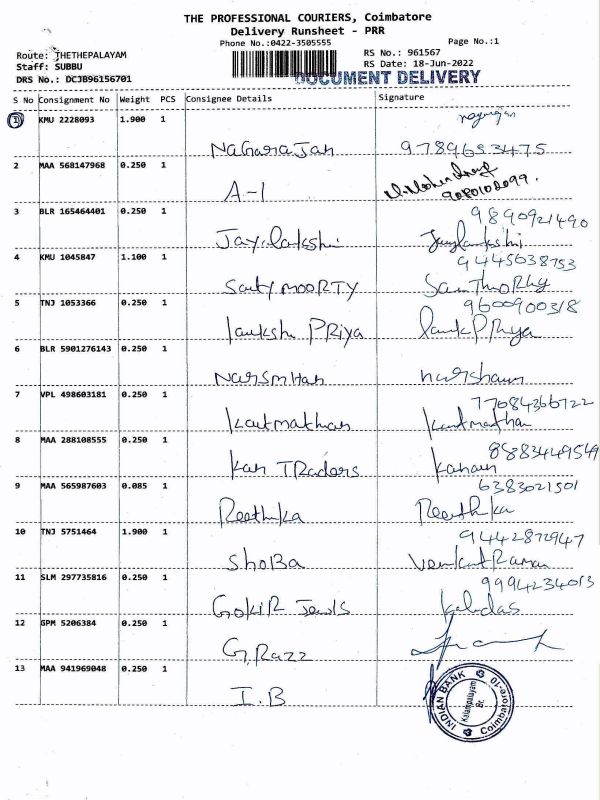 THE PROFESSIONAL COURIERS, Coimbatore
Delivery Runsheet - PRR
Phone No.:0422-3505555
Page No.:1
Route: THETHEPALAYAM
RS No.: 961567
Staff: SUBBU
RS Date: 18-Jun-2022
DRS No.: DCJB96156701
DOCUMENT DELIVERY
S No Consignment No Weight PCS Consignee Details Signature
1 KMU 2228093 1.900 1
Nagarajan 9789683475
2 MAA 568147968 0.250 1
A-1 9080100099.
3 BLR 165464401 0.250 1 9890921490
Jayilakshi
4 KMU 1045847 1.100 1 9445638753
Saty MOORTY
5 TNJ 1053366 0.250 1 9600900318
laukshi PRiya
6 BLR 5901276143 0.250 1
Narsmhan
7 VPL 498603181 0.250 1 77084366722
Kautmathian
8 MAA 288108555 0.250 1 8883449549
Kan TRaders
9 MAA 565987603 0.085 1 6383021501
Reethika Reethika
10 TNJ 5751464 1.900 1 9442872947
ShoBa Venkat Raman
11 SLM 297735816 0.250 1 9994234013
GokiR Jewls kalidas
12 GPM 5206384 0.250 1
G.Razz
13 MAA 941969048 0.250 1
I.B
INDIAN BANK
Kalampalayam
Br.
Coimbatore-10